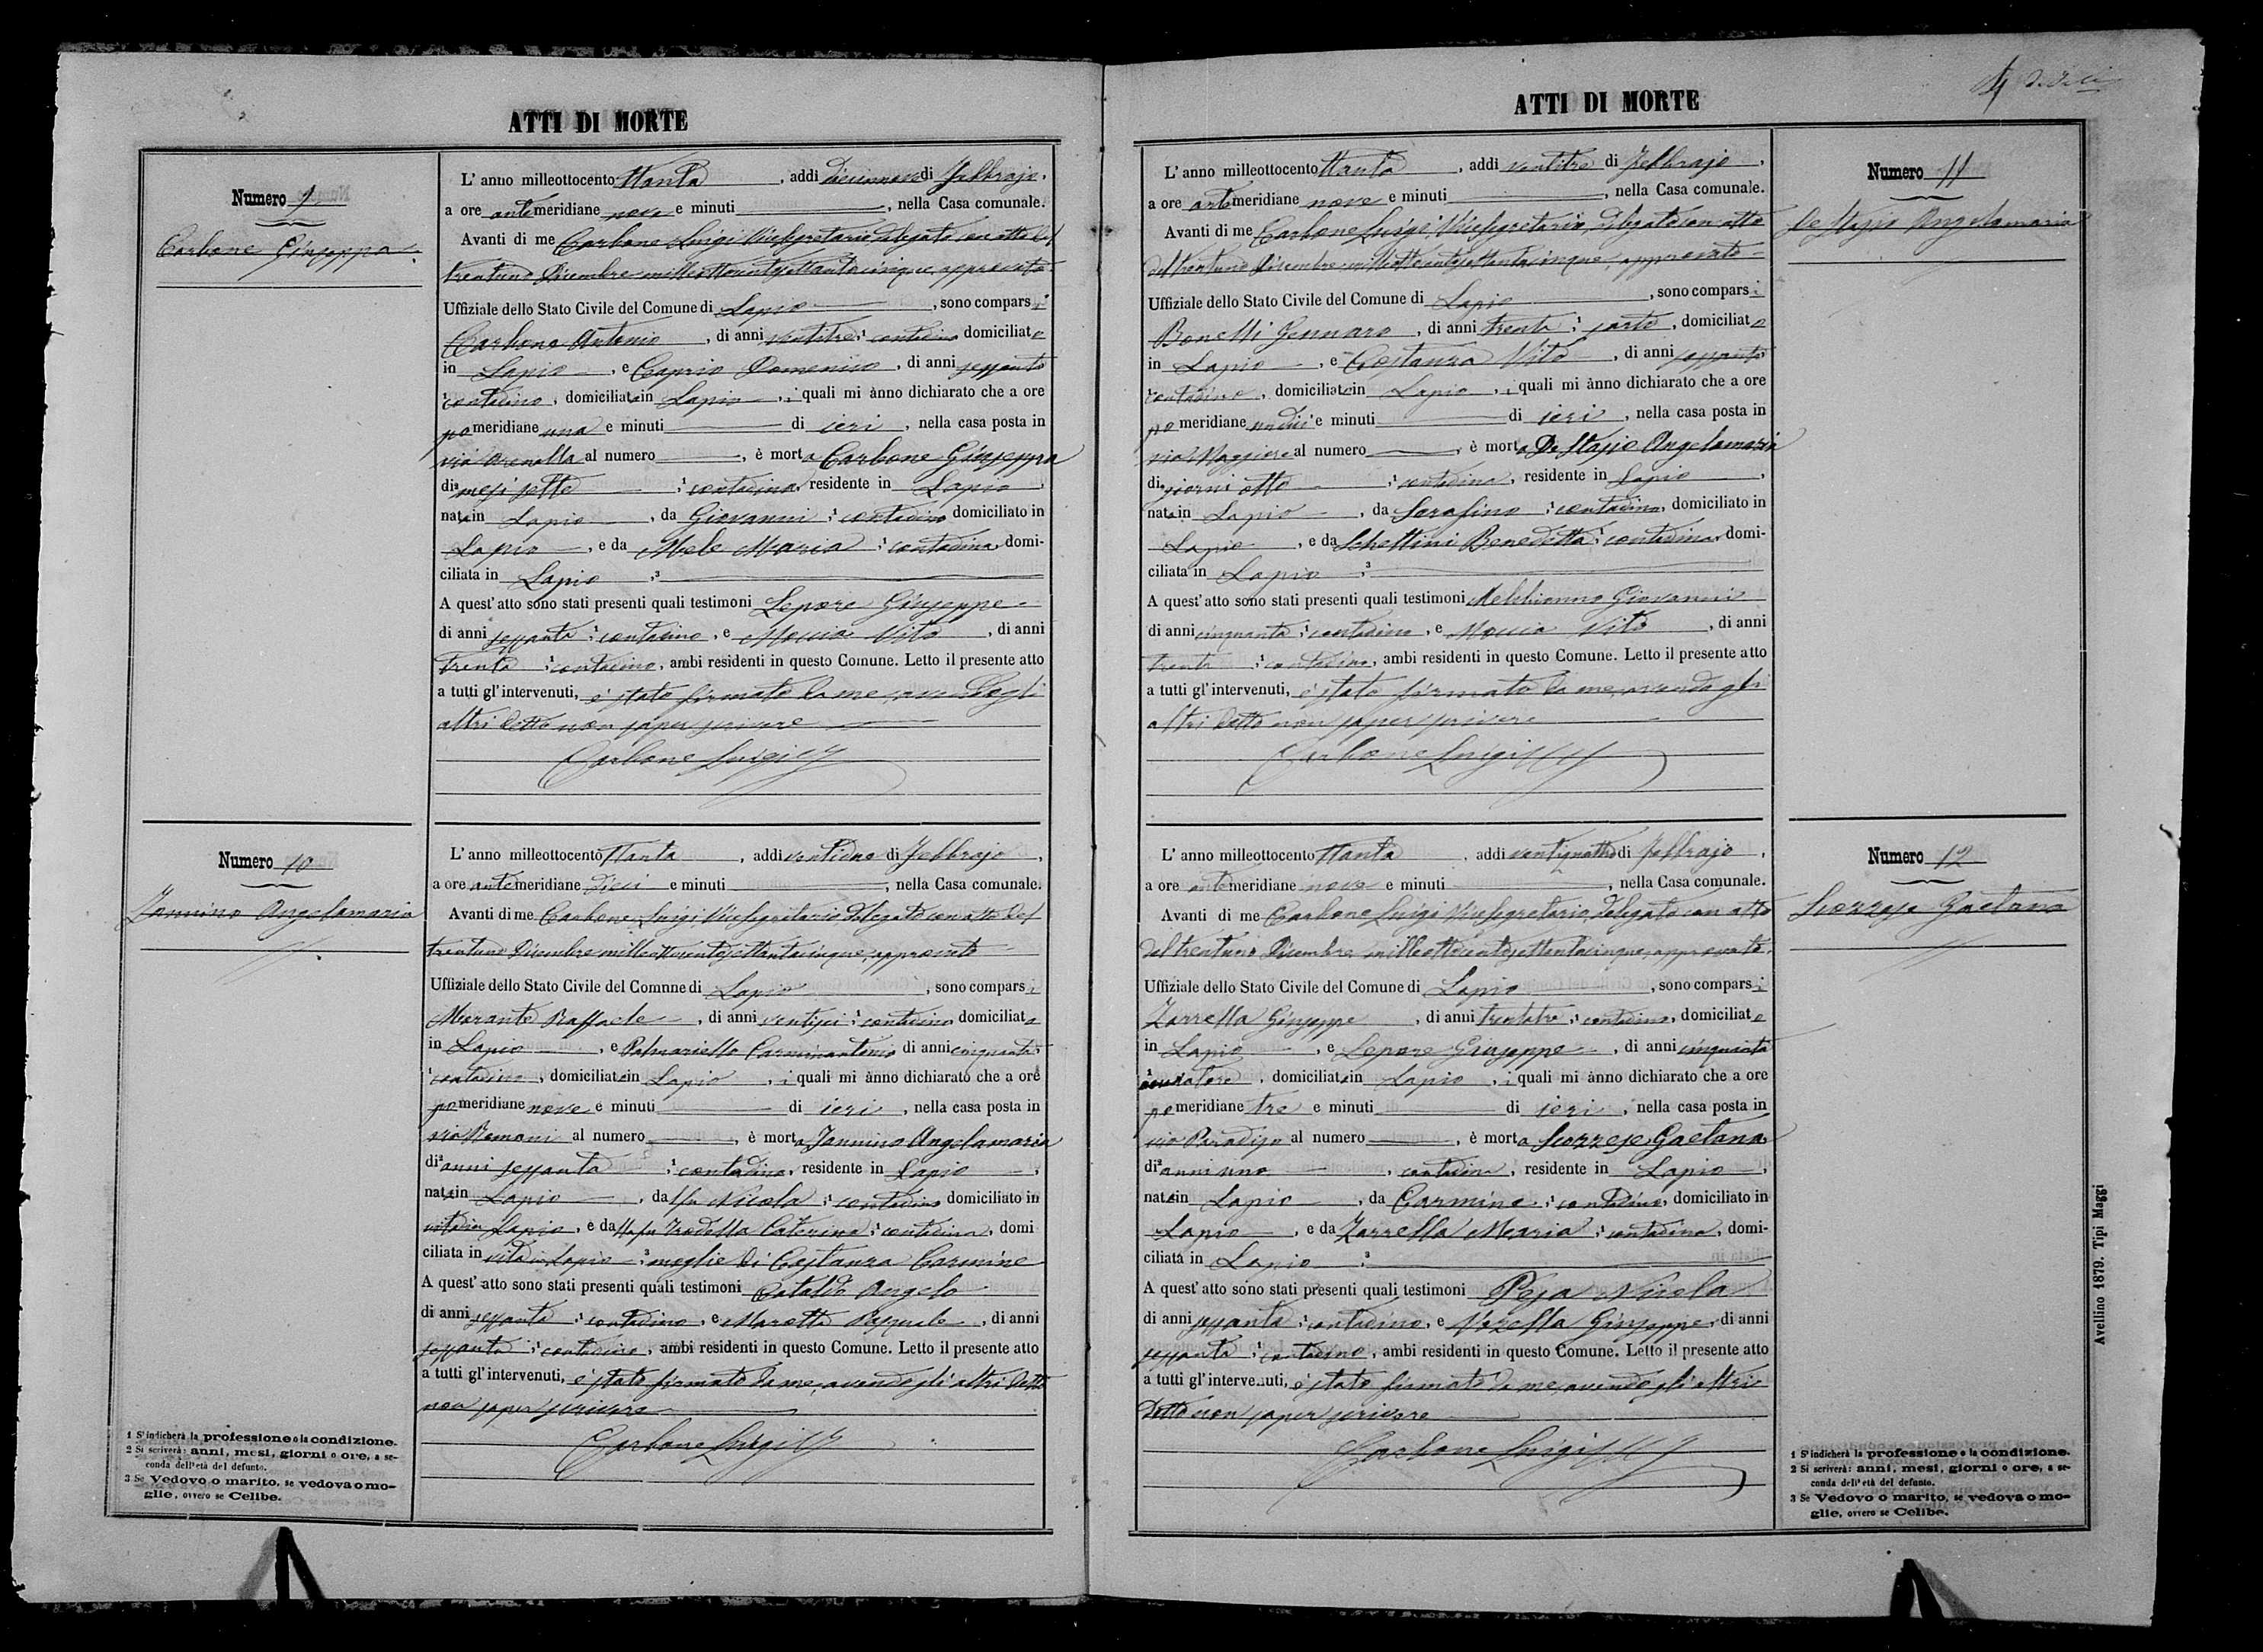 ATTI DI MORTE
Numero 9
Carbone Giuseppa
L' anno milleottocento ottanta, addi diecinnove di Febbrajo,
a ore antemeridiane nove e minuti, nella Casa comunale.
Avanti di me Carbone Luigi Vicesegretario delegato con atto del
trentuno Dicembre milleottocentosettantacinque, approvato
Uffiziale dello Stato Civile del Comune di Lapio, sono comparsi
Carbone Antonio, di anni ventitre, 1 contadino domiciliato
in Lapio, e Caprio Domenico, di anni sessanta
1 contadino, domiciliato in Lapio, i quali mi ànno dichiarato che a ore
pomeridiane una e minuti di ieri, nella casa posta in
via Arenella al numero, è morta Carbone Giuseppa
di 2 mesi sette, 1 contadina, residente in Lapio,
nata in Lapio, da Giovanni, 1 contadino domiciliato in
Lapio, e da Mele Maria, 1 contadina, domi-
ciliata in Lapio, 3
A quest' atto sono stati presenti quali testimoni Lepore Giuseppe
di anni sessanta, 1 contadino, e Moccia Vito, di anni
trenta, 1 contadino, ambi residenti in questo Comune. Letto il presente atto
a tutti gl' intervenuti, è stato firmato da me, avendo gli
altri detto non saper scrivere
Carbone Luigi
Numero 10
Iannino Angelamaria
L' anno milleottocento ottanta, addi ventidue di Febbrajo,
a ore antemeridiane dieci e minuti, nella Casa comunale.
Avanti di me Carbone Luigi Vicesegretario delegato con atto del
trentuno Dicembre milleottocentosettantacinque, approvato
Uffiziale dello Stato Civile del Comnne di Lapio, sono comparsi
Morante Raffaele, di anni ventisei, 1 contadino domiciliato
in Lapio, e Palmariello Carminantonio di anni cinquanta
1 contadino, domiciliato in Lapio, i quali mi ànno dichiarato che a ore
pomeridiane nove e minuti di ieri, nella casa posta in
via Romani al numero, è morta Iannino Angelamaria
di 2 anni sessanta, 1 contadina, residente in Lapio,
nata in Lapio, da fu Nicola, 1 contadino domiciliato in
vita in Lapio, e da fu Caterina, 1 contadina, domi
ciliata in vita in Lapio, 3 moglie di Costanza Carmine
A quest' atto sono stati presenti quali testimoni Cataldo Angelo
di anni sessanta, 1 contadino, e Marotta Pasquale, di anni
sessanta, 1 contadino, ambi residenti in questo Comune. Letto il presente atto
a tutti gl' intervenuti, è stato firmato da me, avendo gli altri detto
non saper scrivere
Carbone Luigi
1 S'indicherà la professione o la condizione.
2 Si scriverà: anni, mesi, giorni o ore, a se-
conda dell'età del defunto.
3 Se Vedovo o marito, se vedova o mo-
glie, ovvero se Celibe.
ATTI DI MORTE
Numero 11
De Stasio Angelamaria
L' anno milleottocento ottanta, addi ventitre di Febbrajo,
a ore antemeridiane nove e minuti, nella Casa comunale.
Avanti di me Carbone Luigi Vicesegretario, delegato con atto
del trentuno Dicembre milleottocentosettantacinque, approvato
Uffiziale dello Stato Civile del Comune di Lapio, sono comparsi
Bonetti Gennaro, di anni trenta, 1 sarto, domiciliato
in Lapio, e Costanza Vito, di anni sessanta
1 contadino, domiciliato in Lapio, i quali mi ànno dichiarato che a ore
pomeridiane undici e minuti di ieri, nella casa posta in
via Maggiore al numero, è morta De Stasio Angelamaria
di 2 giorni otto, 1 contadina, residente in Lapio,
nata in Lapio, da Serafino, 1 contadino, domiciliato in
Lapio, e da Schettini Benedetta, 1 contadina, domi-
ciliata in Lapio, 3
A quest' atto sono stati presenti quali testimoni Melchionno Giovanni
di anni cinquanta, 1 contadino, e Moccia Vito, di anni
trenta, 1 contadino, ambi residenti in questo Comune. Letto il presente atto
a tutti gl' intervenuti, è stato firmato da me, avendo gli
altri detto non saper scrivere
Carbone Luigi
Numero 12
Scozzese Gaetana
L' anno milleottocento ottanta, addi ventiquattro di Febbrajo,
a ore antemeridiane nove e minuti, nella Casa comunale.
Avanti di me Carbone Luigi Vicesegretario, delegato con atto
del trentuno Dicembre milleottocentosettantacinque, approvato,
Uffiziale dello Stato Civile del Comune di Lapio, sono comparsi
Zarrella Giuseppe, di anni trentatre, 1 contadino, domiciliato
in Lapio, e Lepore Giuseppe, di anni cinquanta
1, domiciliato in Lapio, i quali mi ànno dichiarato che a ore
pomeridiane tre e minuti di ieri, nella casa posta in
via Paradiso al numero, è morta Scozzese Gaetana
di 2 anni uno, contadina, residente in Lapio,
nata in Lapio, da Carmine, 1 contadino, domiciliato in
Lapio, e da Zarrella Maria, 1 contadina, domi-
ciliata in Lapio, 3
A quest' atto sono stati presenti quali testimoni Pesa Nicola
di anni sessanta, 1 contadino, e Vozella Giuseppe, di anni
sessanta, 1 contadino, ambi residenti in questo Comune. Letto il presente atto
a tutti gl' intervenuti, è stato firmato da me, avendo gli altri
detto non saper scrivere
Carbone Luigi
1 S'indicherà la professione o la condizione.
2 Si scriverà: anni, mesi, giorni o ore, a se-
conda dell'età del defunto.
3 Se Vedovo o marito, se vedova o mo-
glie, ovvero se Celibe.
Avellino 1879. Tipi Maggi